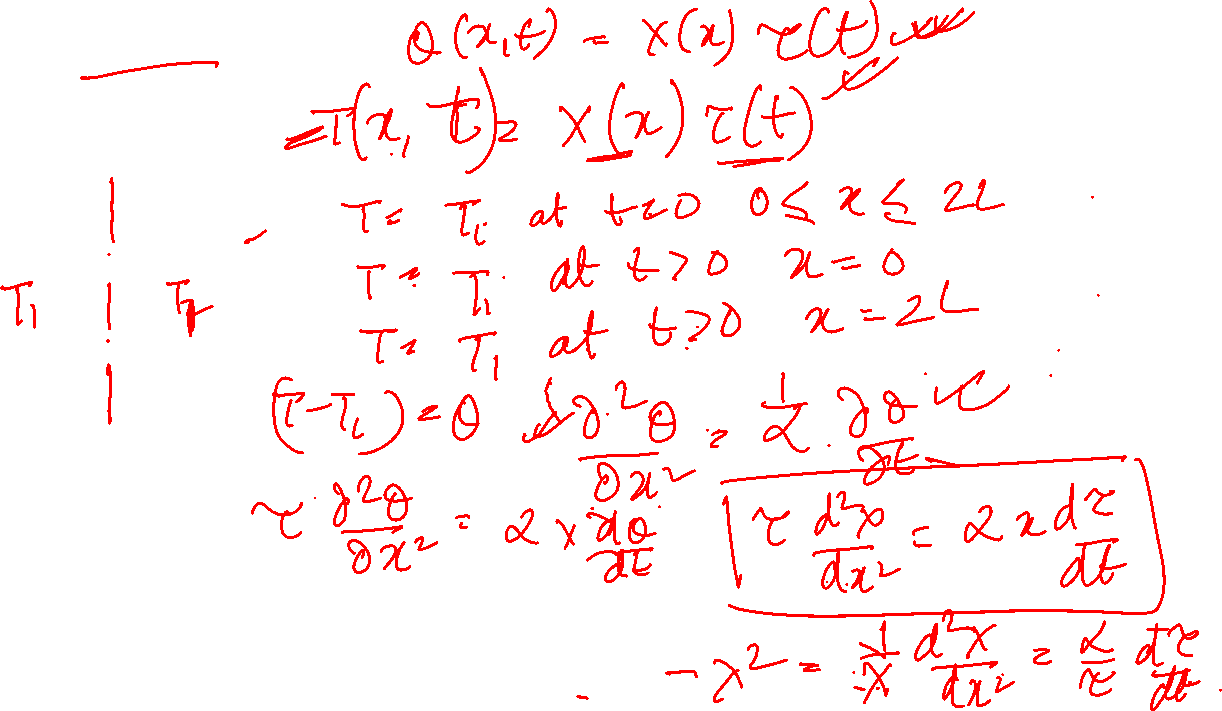 θ(x,t) = X(x) τ(t)
T(x, t) = X(x) τ(t)
T = Ti at t=0 0 ≤ x ≤ 2L
T = T1 at t>0 x=0
T1
T = T1 at t>0 x=2L
(T-Ti) = θ ∂²θ/∂x² = 1/α . ∂θ/∂t
τ ∂²θ/∂x² = α x dθ/dt
τ d²x/dx² = α x dτ/dt
-λ² = 1/X d²X/dx² = α/τ dτ/dt